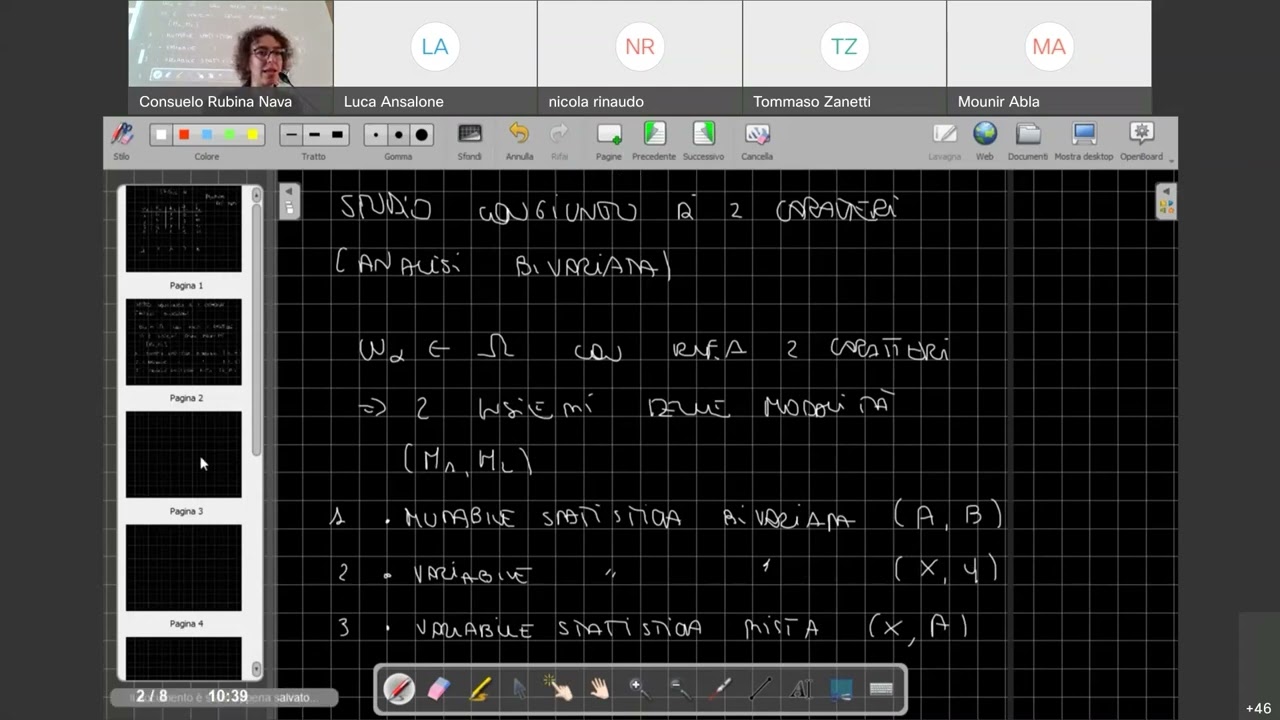 LA
NR
TZ
MA
Consuelo Rubina Nava
Luca Ansalone
nicola rinaudo
Tommaso Zanetti
Mounir Abla
Stilo
Colore
Tratto
Gomma
Sfondi
Annulla
Rifai
Pagine
Precedente
Successivo
Cancella
Lavagna
Web
Documenti
Mostra desktop
OpenBoard
STUDIO CONGIUNTO DI 2 CARATTERI
(ANALISI BIVARIATA)
ωα ∈ Ω CON RIF. A 2 CARATTERI
=> 2 INSIEMI DELLE MODALITÀ
(M1, M2)
1 • MUTABILE STATISTICA BIVARIATA (A, B)
2 • VARIABILE " " (X, Y)
3 • VARIABILE STATISTICA MISTA (X, A)
Pagina 1
Pagina 2
Pagina 3
Pagina 4
2 / 8
10:39
salvato...
+46